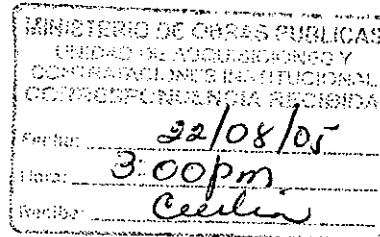 MINISTERIO DE OBRAS PUBLICAS
UNIDAD DE ADQUISICIONES Y
CONTRATACIONES INSTITUCIONAL
CORRESPONDENCIA RECIBIDA
Fecha: 22/08/05
Hora: 3:00pm
Recibe: Cecilia